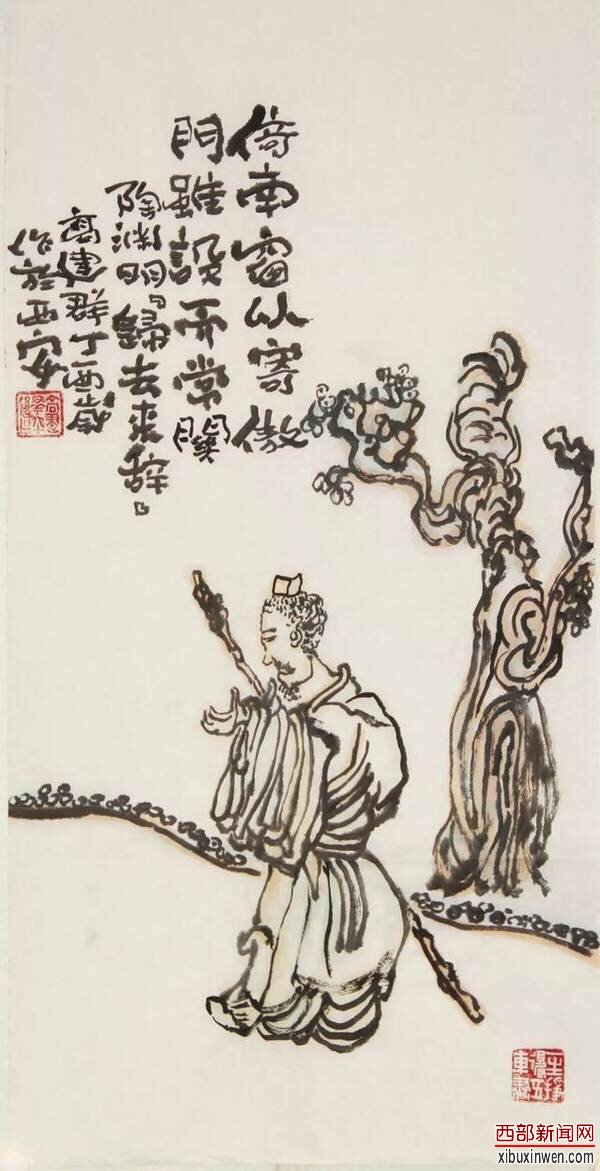 倚南窗以寄傲
門雖設而常關
陶渊明歸去来辞
高建群丁酉歲
作於西安
西部新闻网
xibuxinwen.com